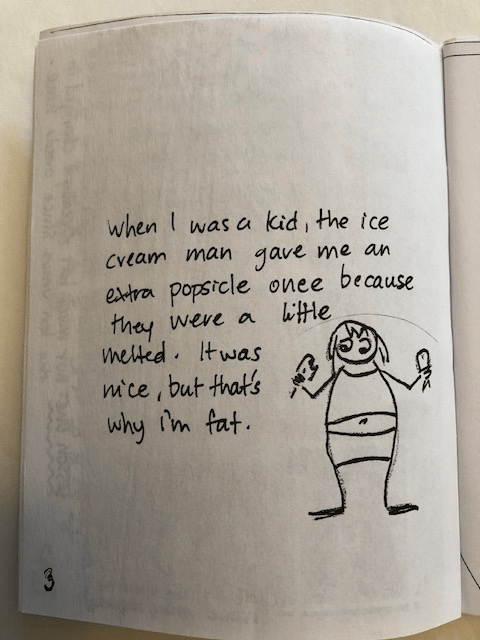 When I was a kid, the ice
cream man gave me an
extra popsicle once because
they were a little
melted. It was
nice, but that's
why i'm fat.
3